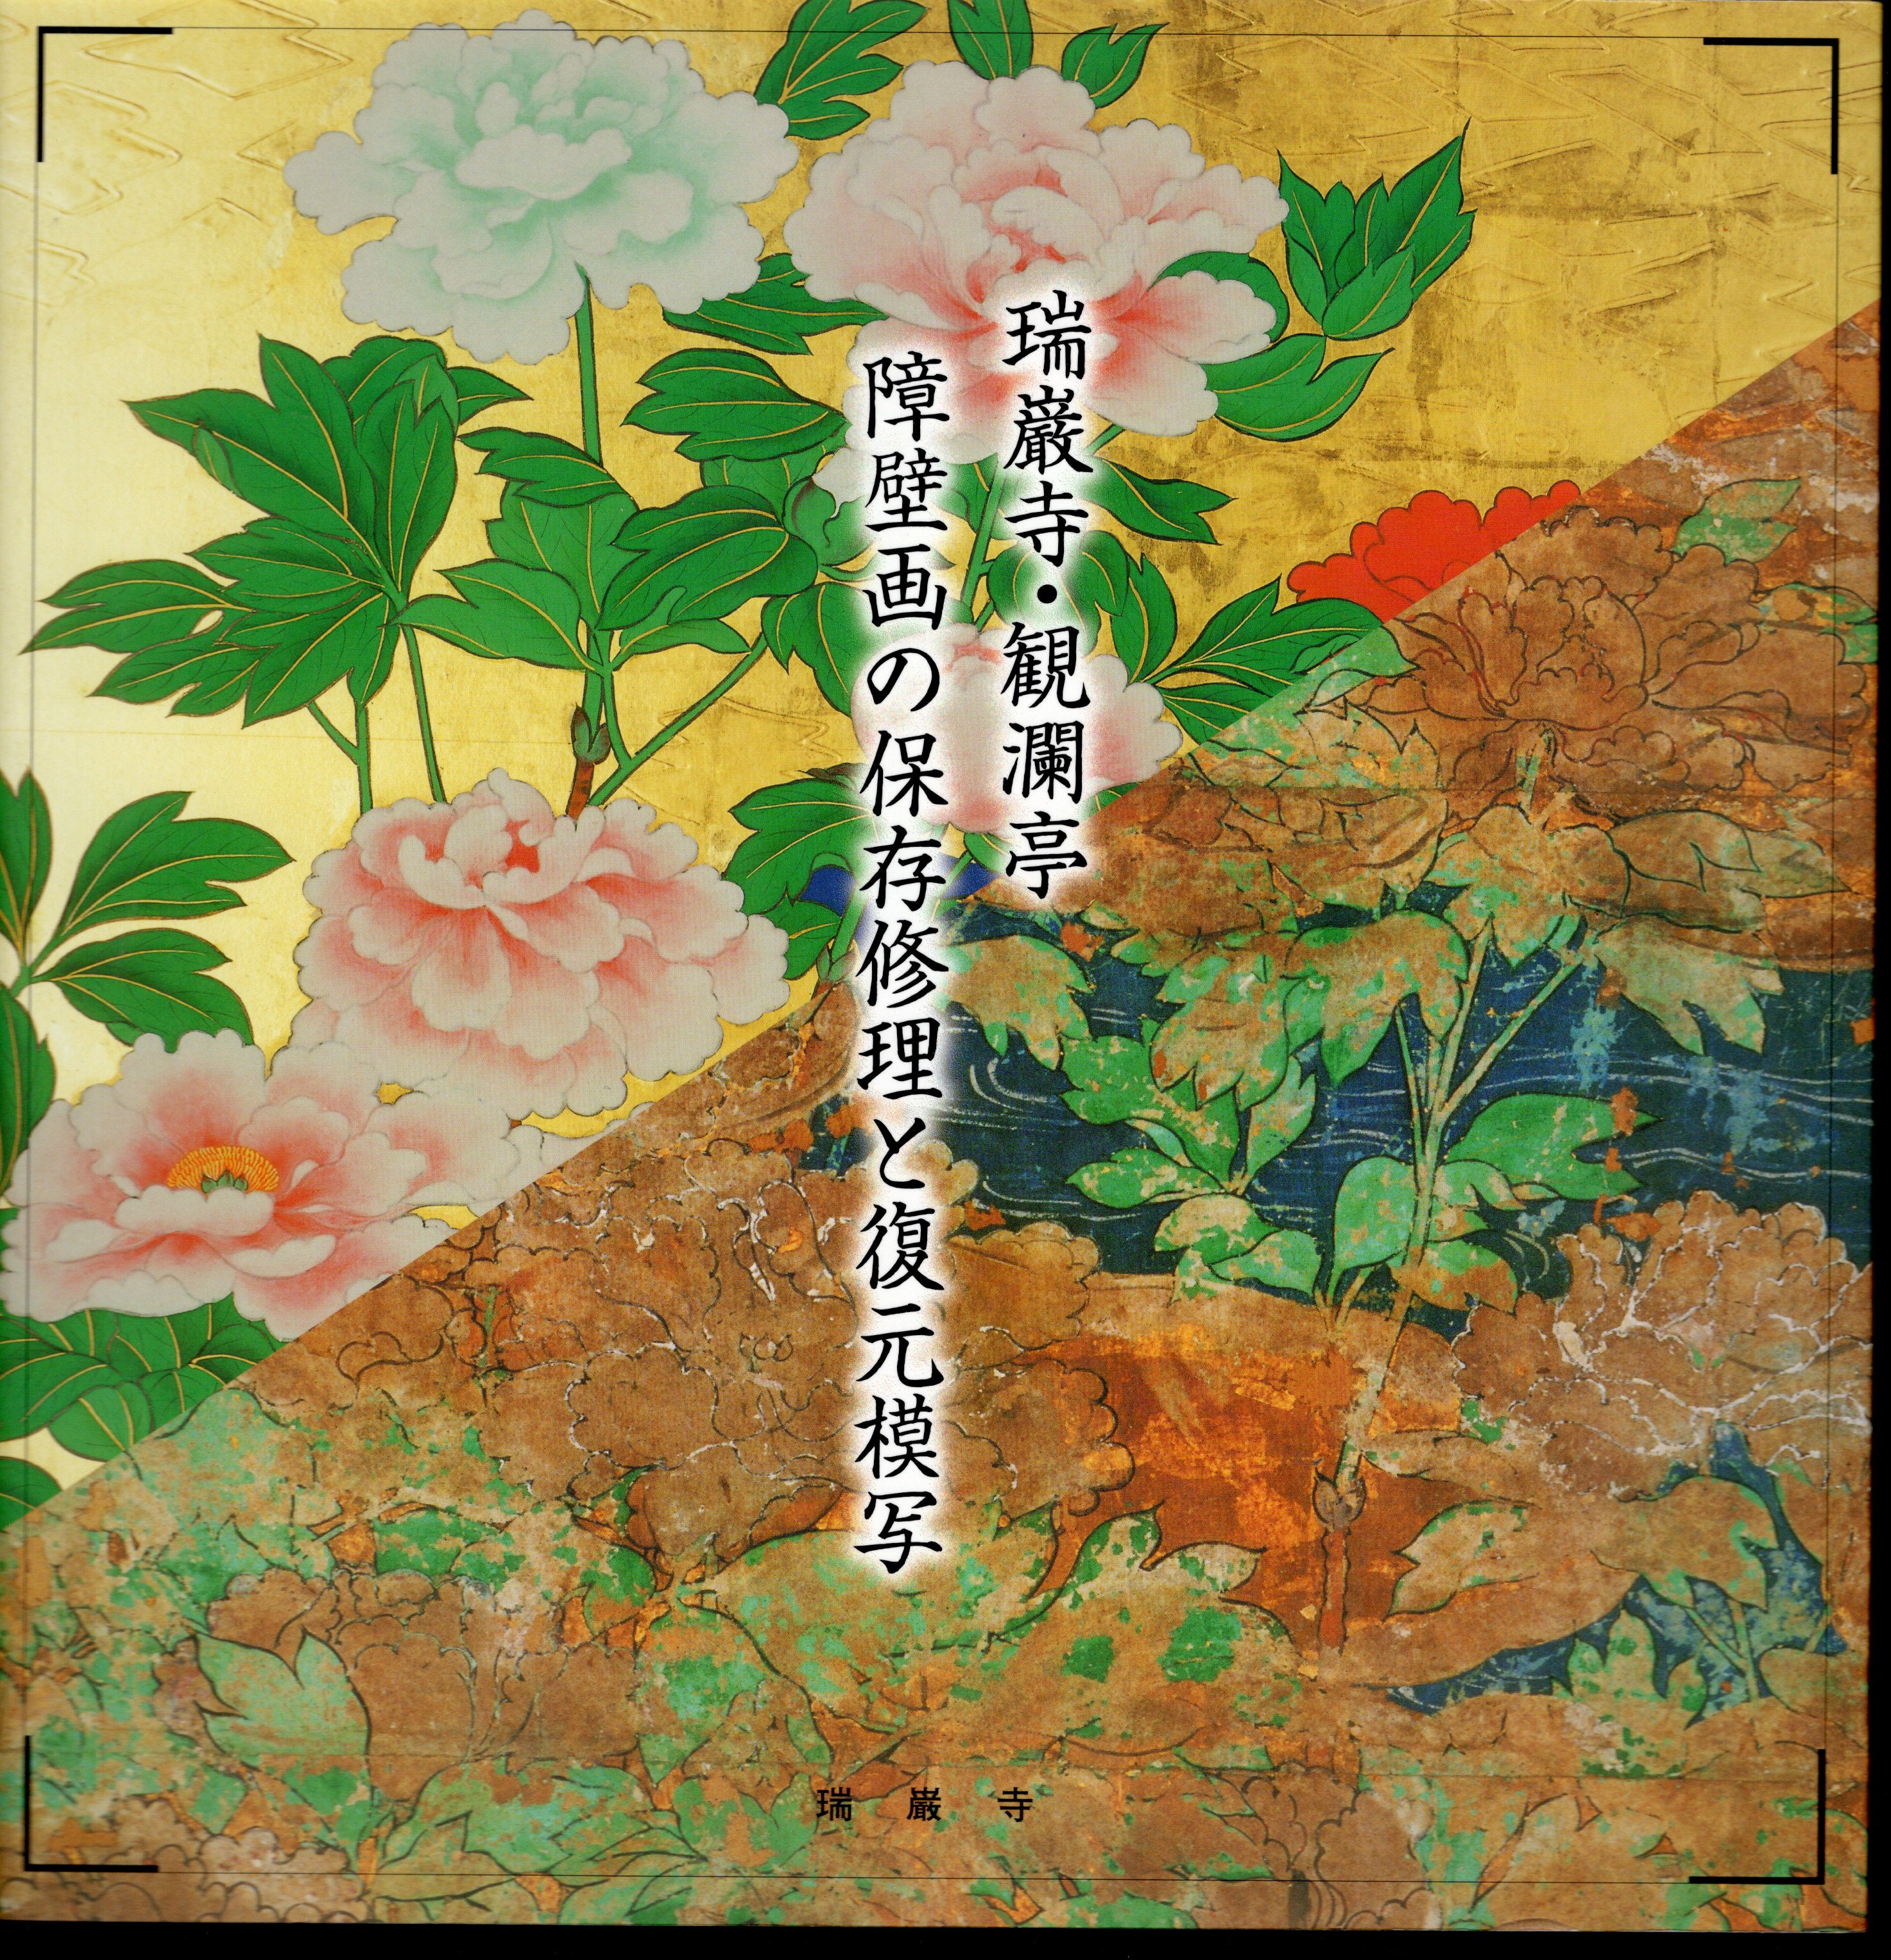 瑞巌寺・観瀾亭
障壁画の保存修理と復元模写
瑞巌寺